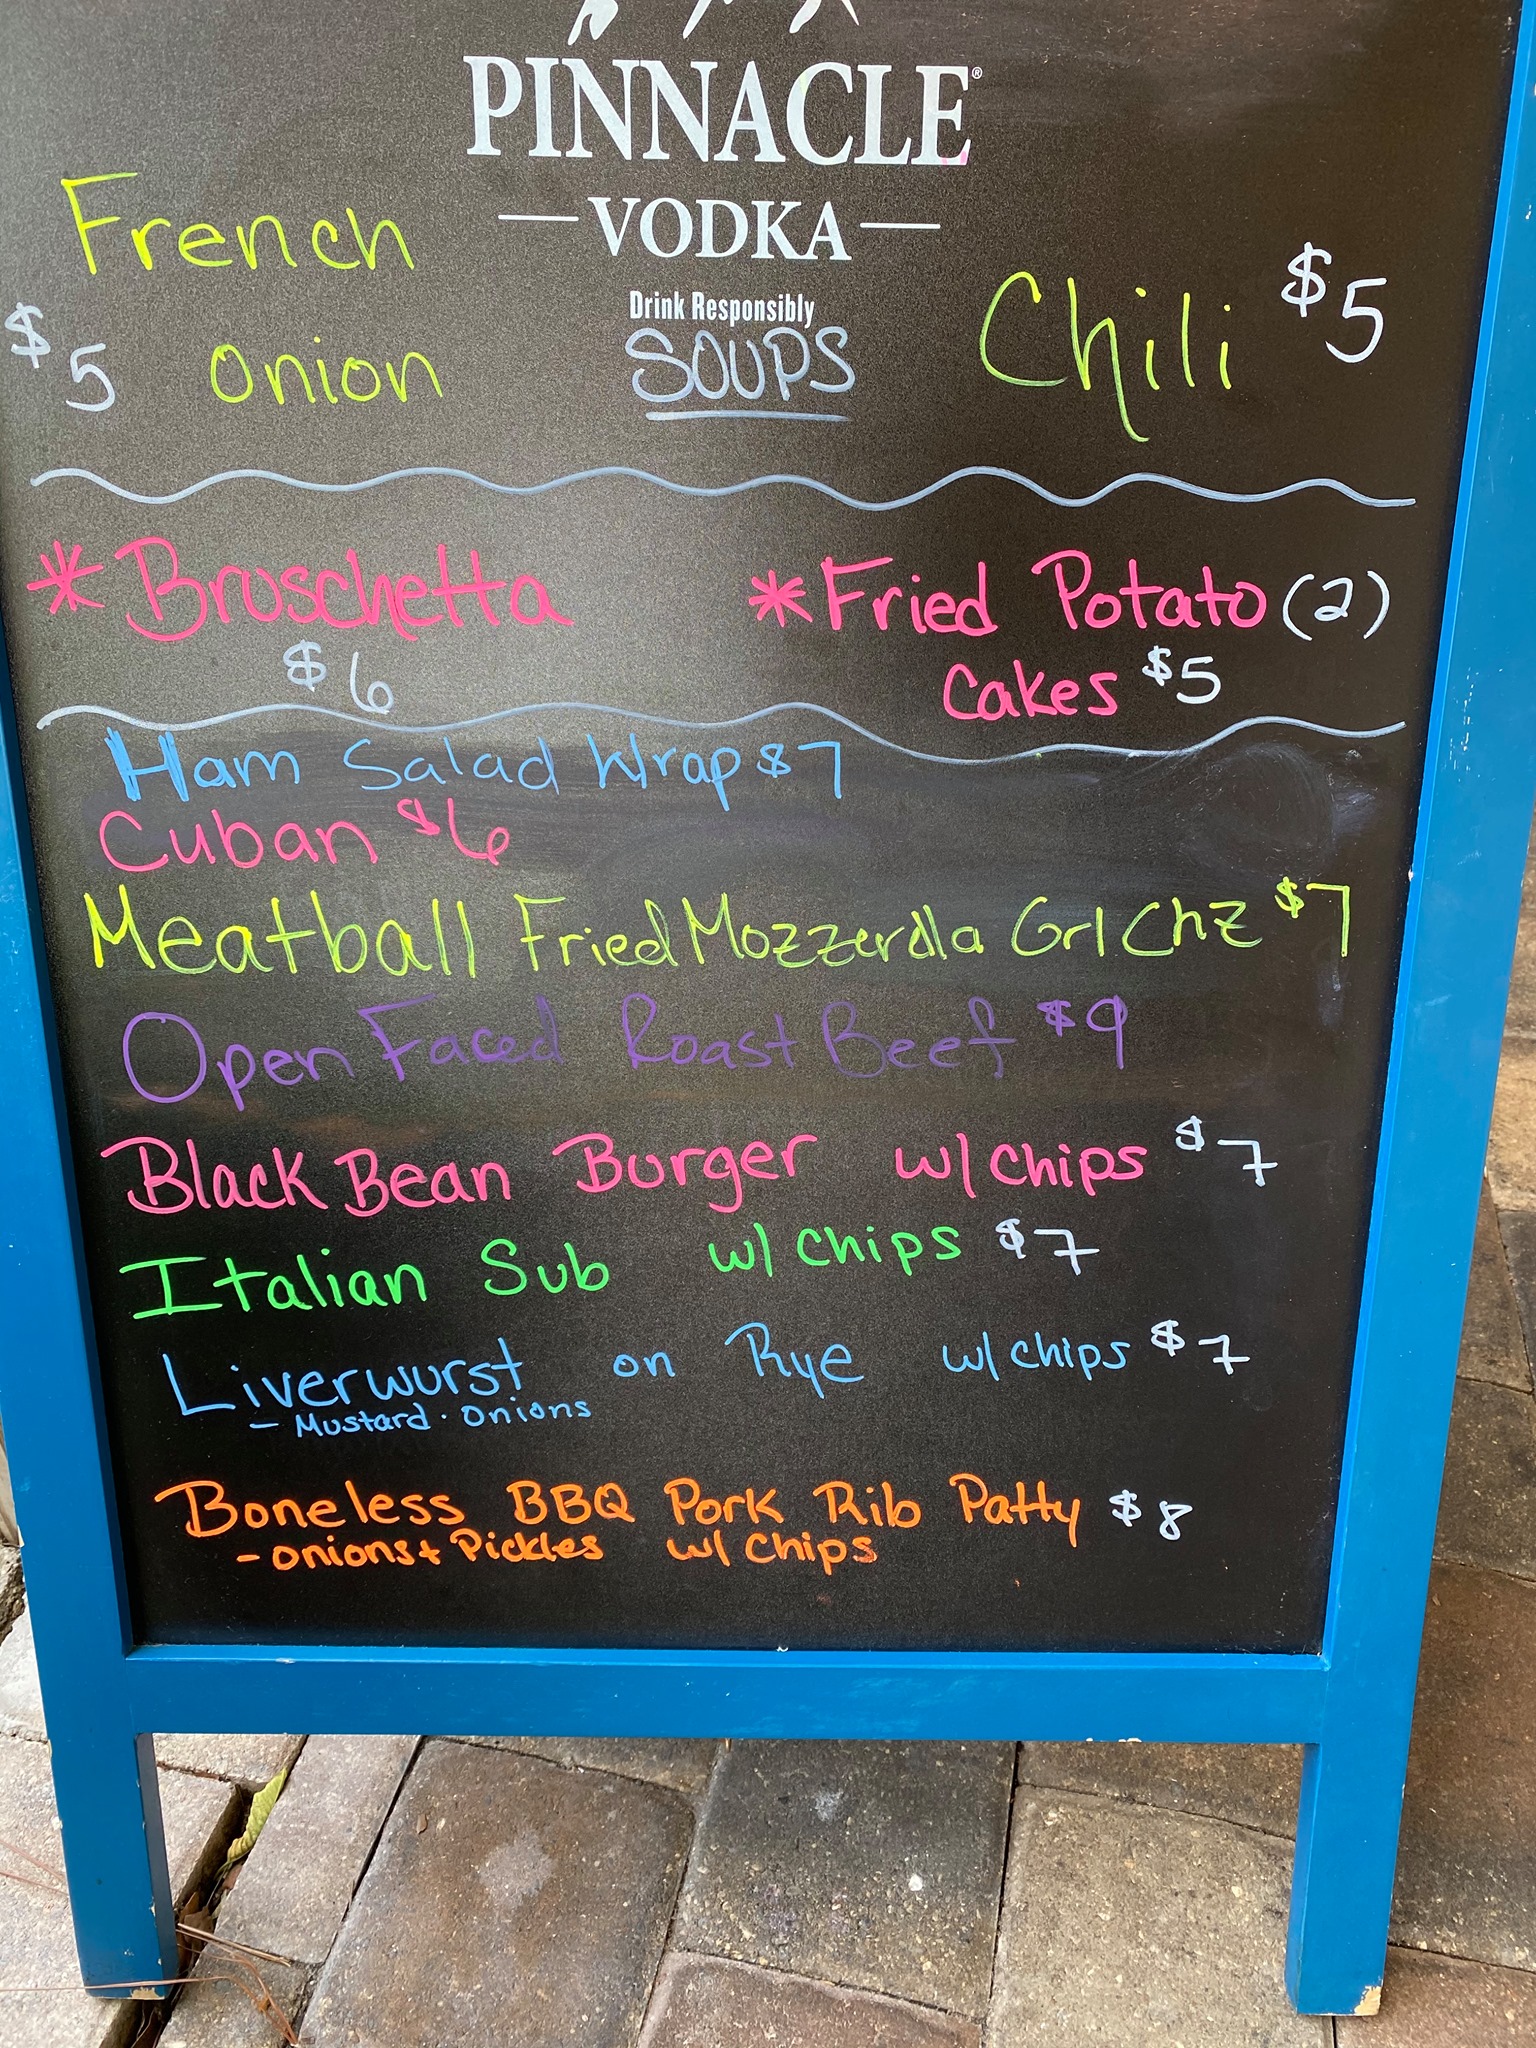 PINNACLE®
VODKA
Drink Responsibly
SOUPS
French
Onion
$5
Chili $5
*Bruschetta
$6
*Fried Potato (2)
Cakes $5
Ham Salad Wrap $7
Cuban $6
Meatball Fried Mozzerella Grl Chz $7
Open Faced Roast Beef $9
Black Bean Burger w/ chips $7
Italian Sub w/ chips $7
Liverwurst on Rye w/ chips $7
- Mustard · Onions
Boneless BBQ Pork Rib Patty $8
- Onions + Pickles w/ Chips